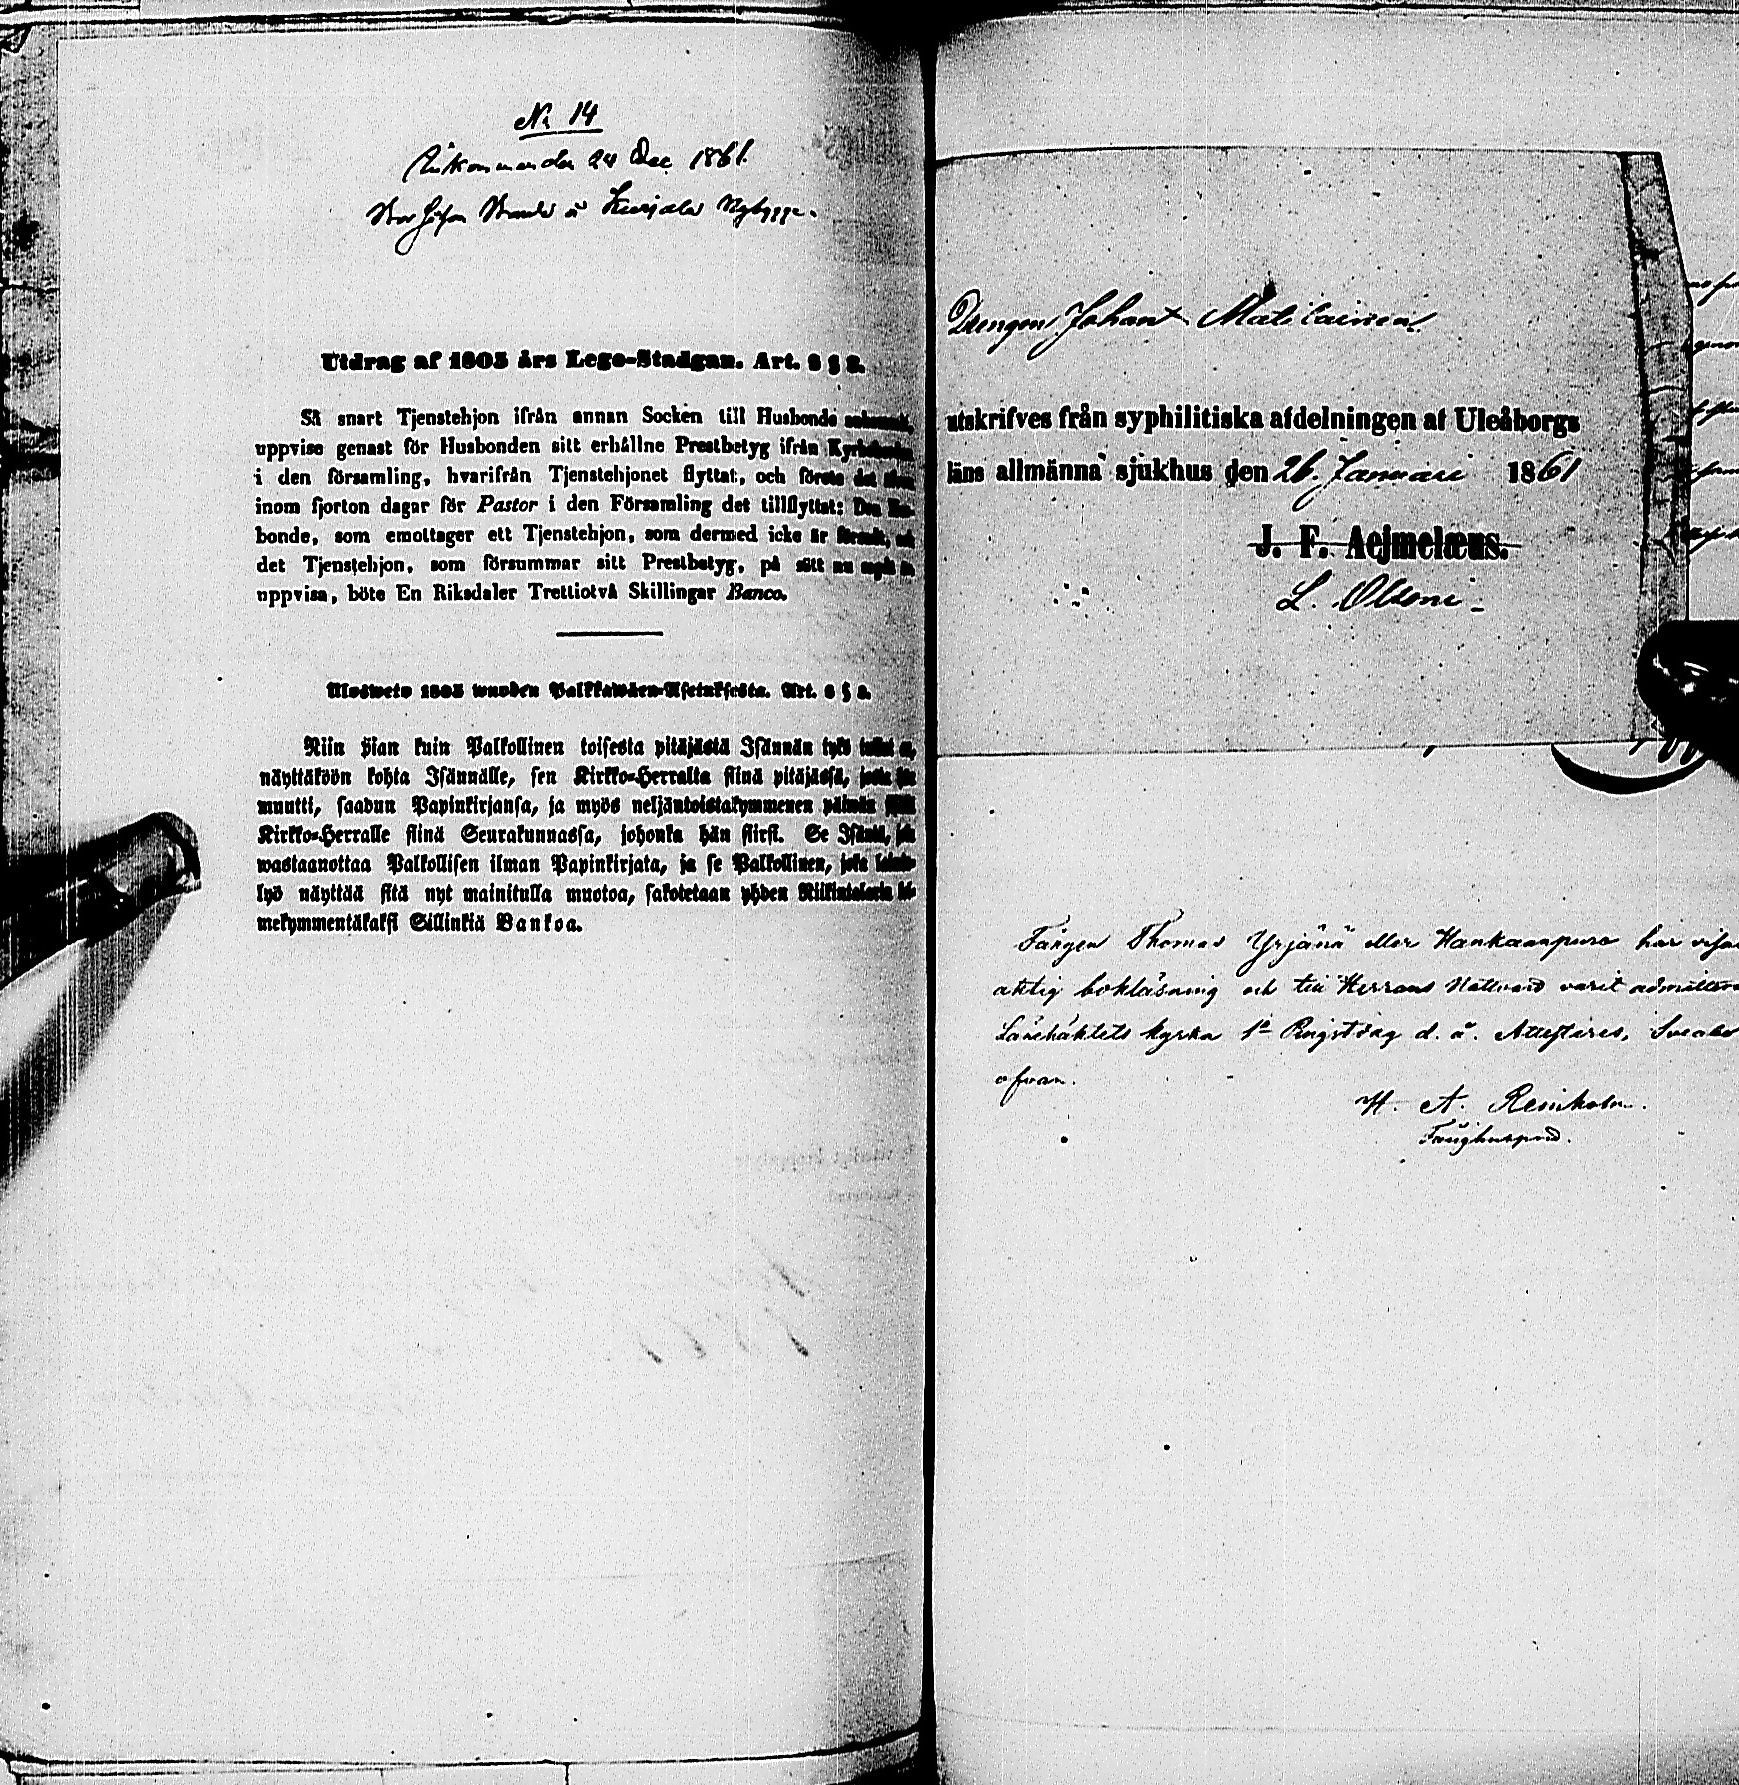 No 14
24 Dec. 1861.
Utdrag af 1805 års Lego-Stadgan. Art. 8 § 8.
Så snart Tjenstehjon ifrån annan Socken till Husbonde
uppvise genast för Husbonden sitt erhållne Prestbetyg ifrån
i den församling, hvarifrån Tjenstehjonet flyttat, och förete det
inom fjorton dagar för Pastor i den Församling det tillflyttat: Den
bonde, som emottager ett Tjenstehjon, som dermed icke är försedt, och
det Tjenstehjon, som försummar sitt Prestbetyg, på sätt nu
uppvisa, böte En Riksdaler Trettiotvå Skillingar Banco.
Ulosweto 1805 wuoden Palkkawäen-Asetuksesta. Art. 8 § 8.
Niin pian kuin Palkollinen toisesta pitäjästä Isännän tykö
näyttäköön kohta Isännälle, sen Kirkko-Herralta siinä pitäjässä,
muutti, saadun Papinkirjansa, ja myös neljäntoistakymmenen päiwän
Kirkko-Herralle siinä Seurakunnassa, johonka hän siirsi. Se Isäntä,
wastaanottaa Palkollisen ilman Papinkirjata, ja se Palkollinen, joka
lyö näyttää sitä nyt mainitulla muotoa, sakotetaan yhden Riikintalarin
mekymmentäkaksi Sillinkiä Bankoa.
Drengen Johan Matilainen
utskrifves från syphilitiska afdelningen af Uleåborgs
läns allmänna sjukhus den 26. Januari 1861
J. F. Aejmelæus.
L.
Fången Thomas Yrjänä eller Hankaanpuro har
aktig bokläsning och till Herrans Nattvard varit
Länehäktets kyrka 1a Pingstdag d. å. Attesteres,
ofvan.
H. A. Reinholm.